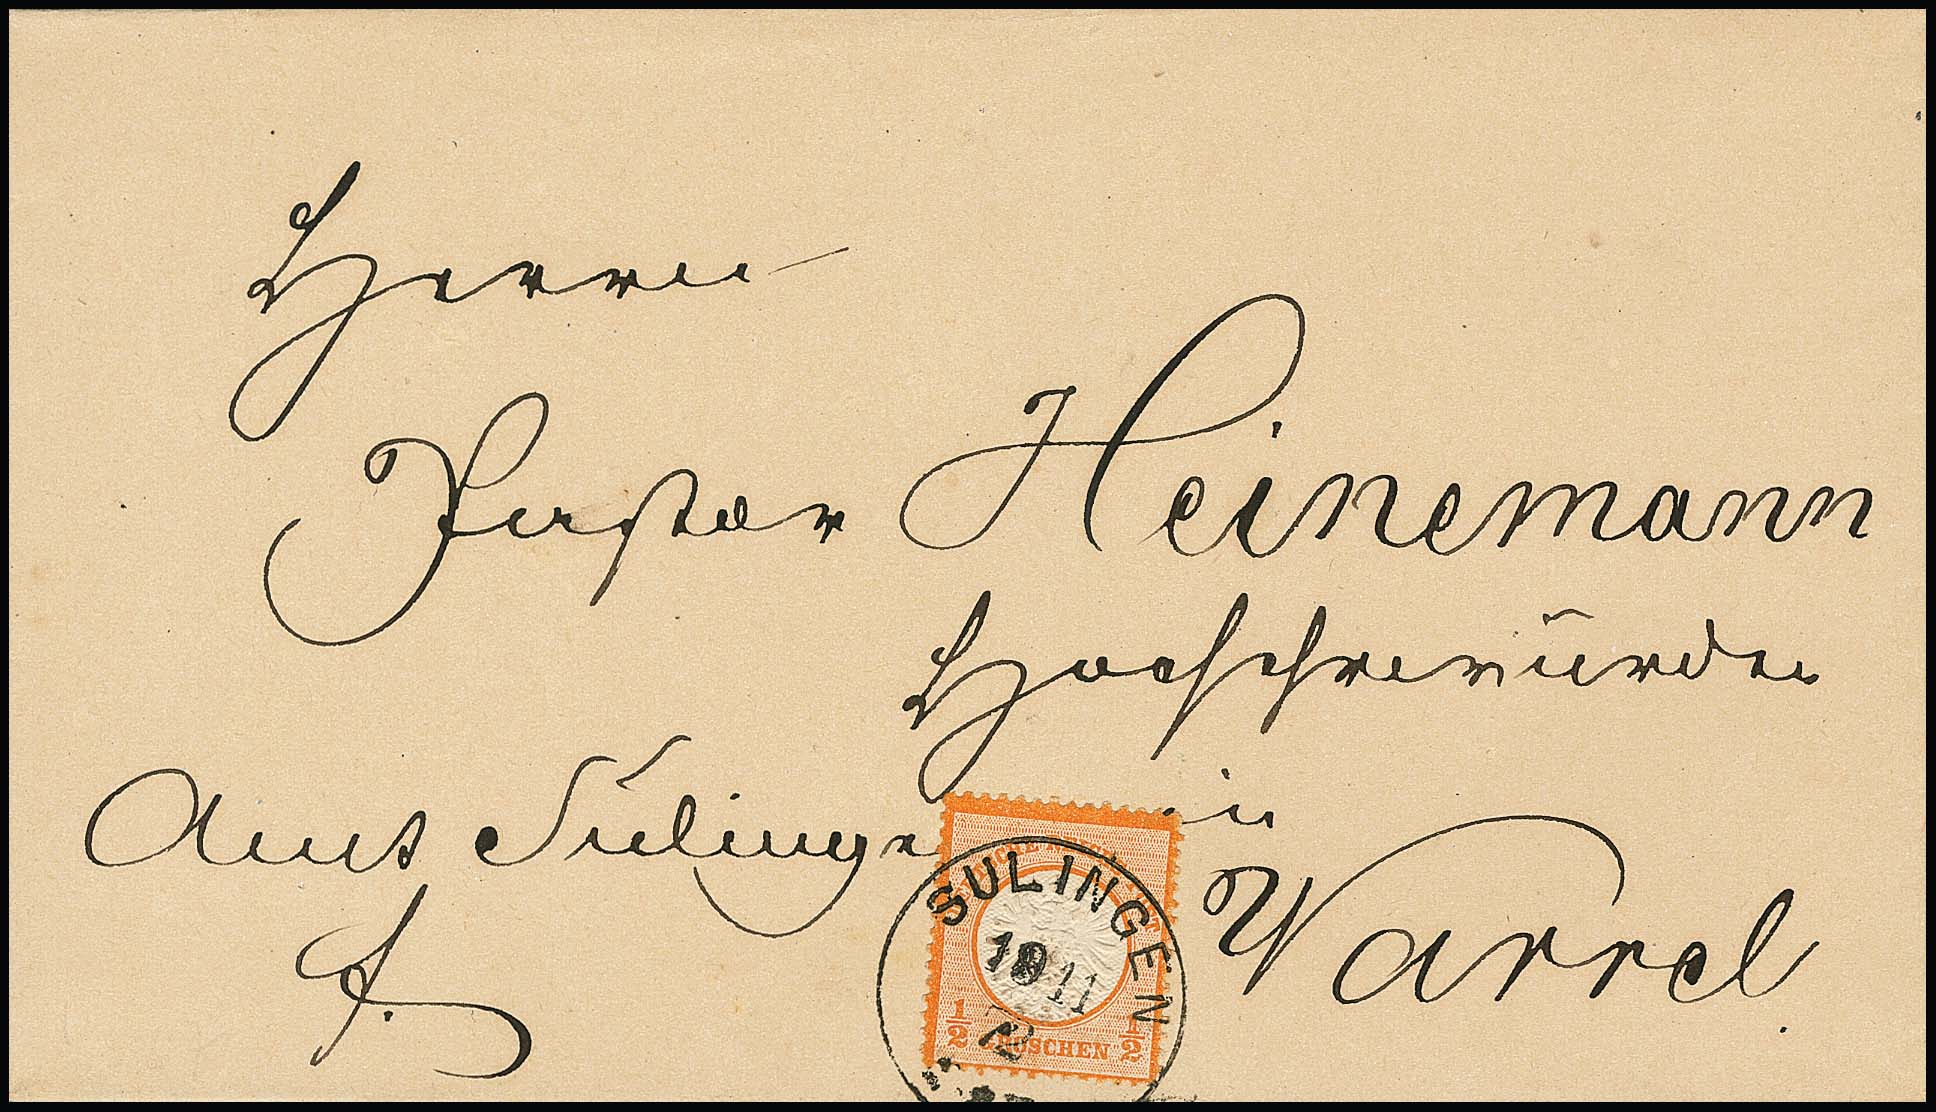 Herrn
Pastor Heinemann
Hochehrwürden
in
Amt Sulingen
Varrel
fr.
SULINGEN
11
72
GROSCHEN
1/2 1/2